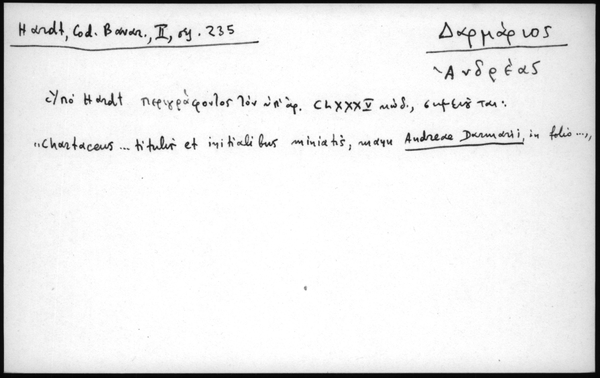 Hardt, Cod. Bavar., II, σγ. 235
Δαρμάριος
Ἀνδρέας
Ὑπό Hardt περιγράφοντος τόν ὑπ' ἀρ. CLXXXV κώδ., σημειοῦται:
„Chartaceus ... titulis et initialibus miniatis, manu Andreae Darmarii, in folio ...„